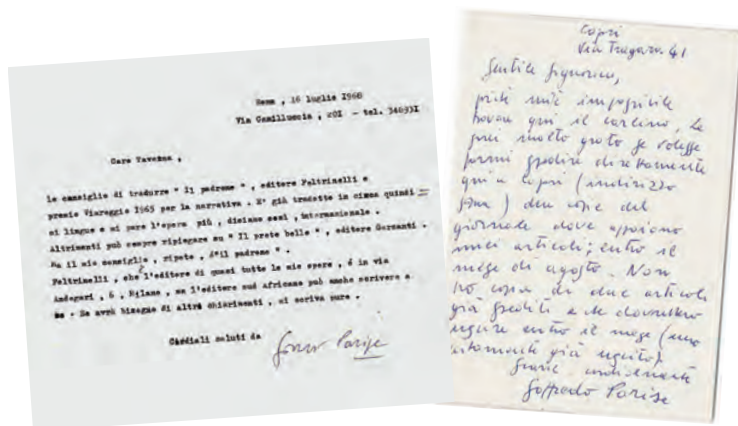 Roma , 16 luglio 1968
Via Camilluccia , 201 - tel. 340931
Caro Taverna ,
le consiglio di tradurre " Il padrone " , editore Feltrinelli e
premio Viareggio 1965 per la narrativa . E' già tradotto in cinma quindi =
ci lingue e mi pare l'opera più , diciamo così , internazionale .
Altrimenti può sempre ripiegare su " Il prete bello " , editore Garzanti .
Ma il mio consiglio , ripeto , è"il padrone " .
Feltrinelli , che l'editore di quasi tutte le mie opere , é in via
Andegari , 6 , Milano , ma l'editore sud africano può anche scrivere a
me . Se avrà bisogno di altri chiarimenti , mi scriva pure .
Cordiali saluti da
Goffredo Parise
Capri
Via Tragara 41
Gentile Signorina,
poiché mi è impossibile
trovare qui il carlino, Le
sarei molto grato se volesse
farmi spedire direttamente
qui a Capri (indirizzo
) due copie del
giornale dove appaiono
miei articoli; entro il
mese di agosto. Non
ho copia di due articoli
già spediti e che dovrebbero
uscire entro il mese (uno
già uscito).
Grazie
Goffredo Parise